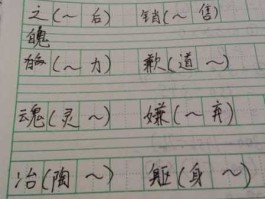 之(～后) 销(～售)
魄
(～力) 歉(道～)
魂(灵～) 嫌(～弃)
冶(陶～) 躯(身～)